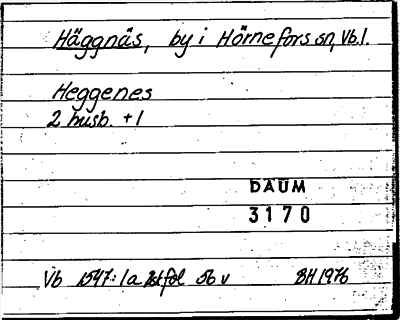 Häggnäs, by i Hörnefors sn, Vb.l.
Heggenes
2 husb. +1
DAUM
3170
Vb 1547: 1a fol 56 v BH 1976